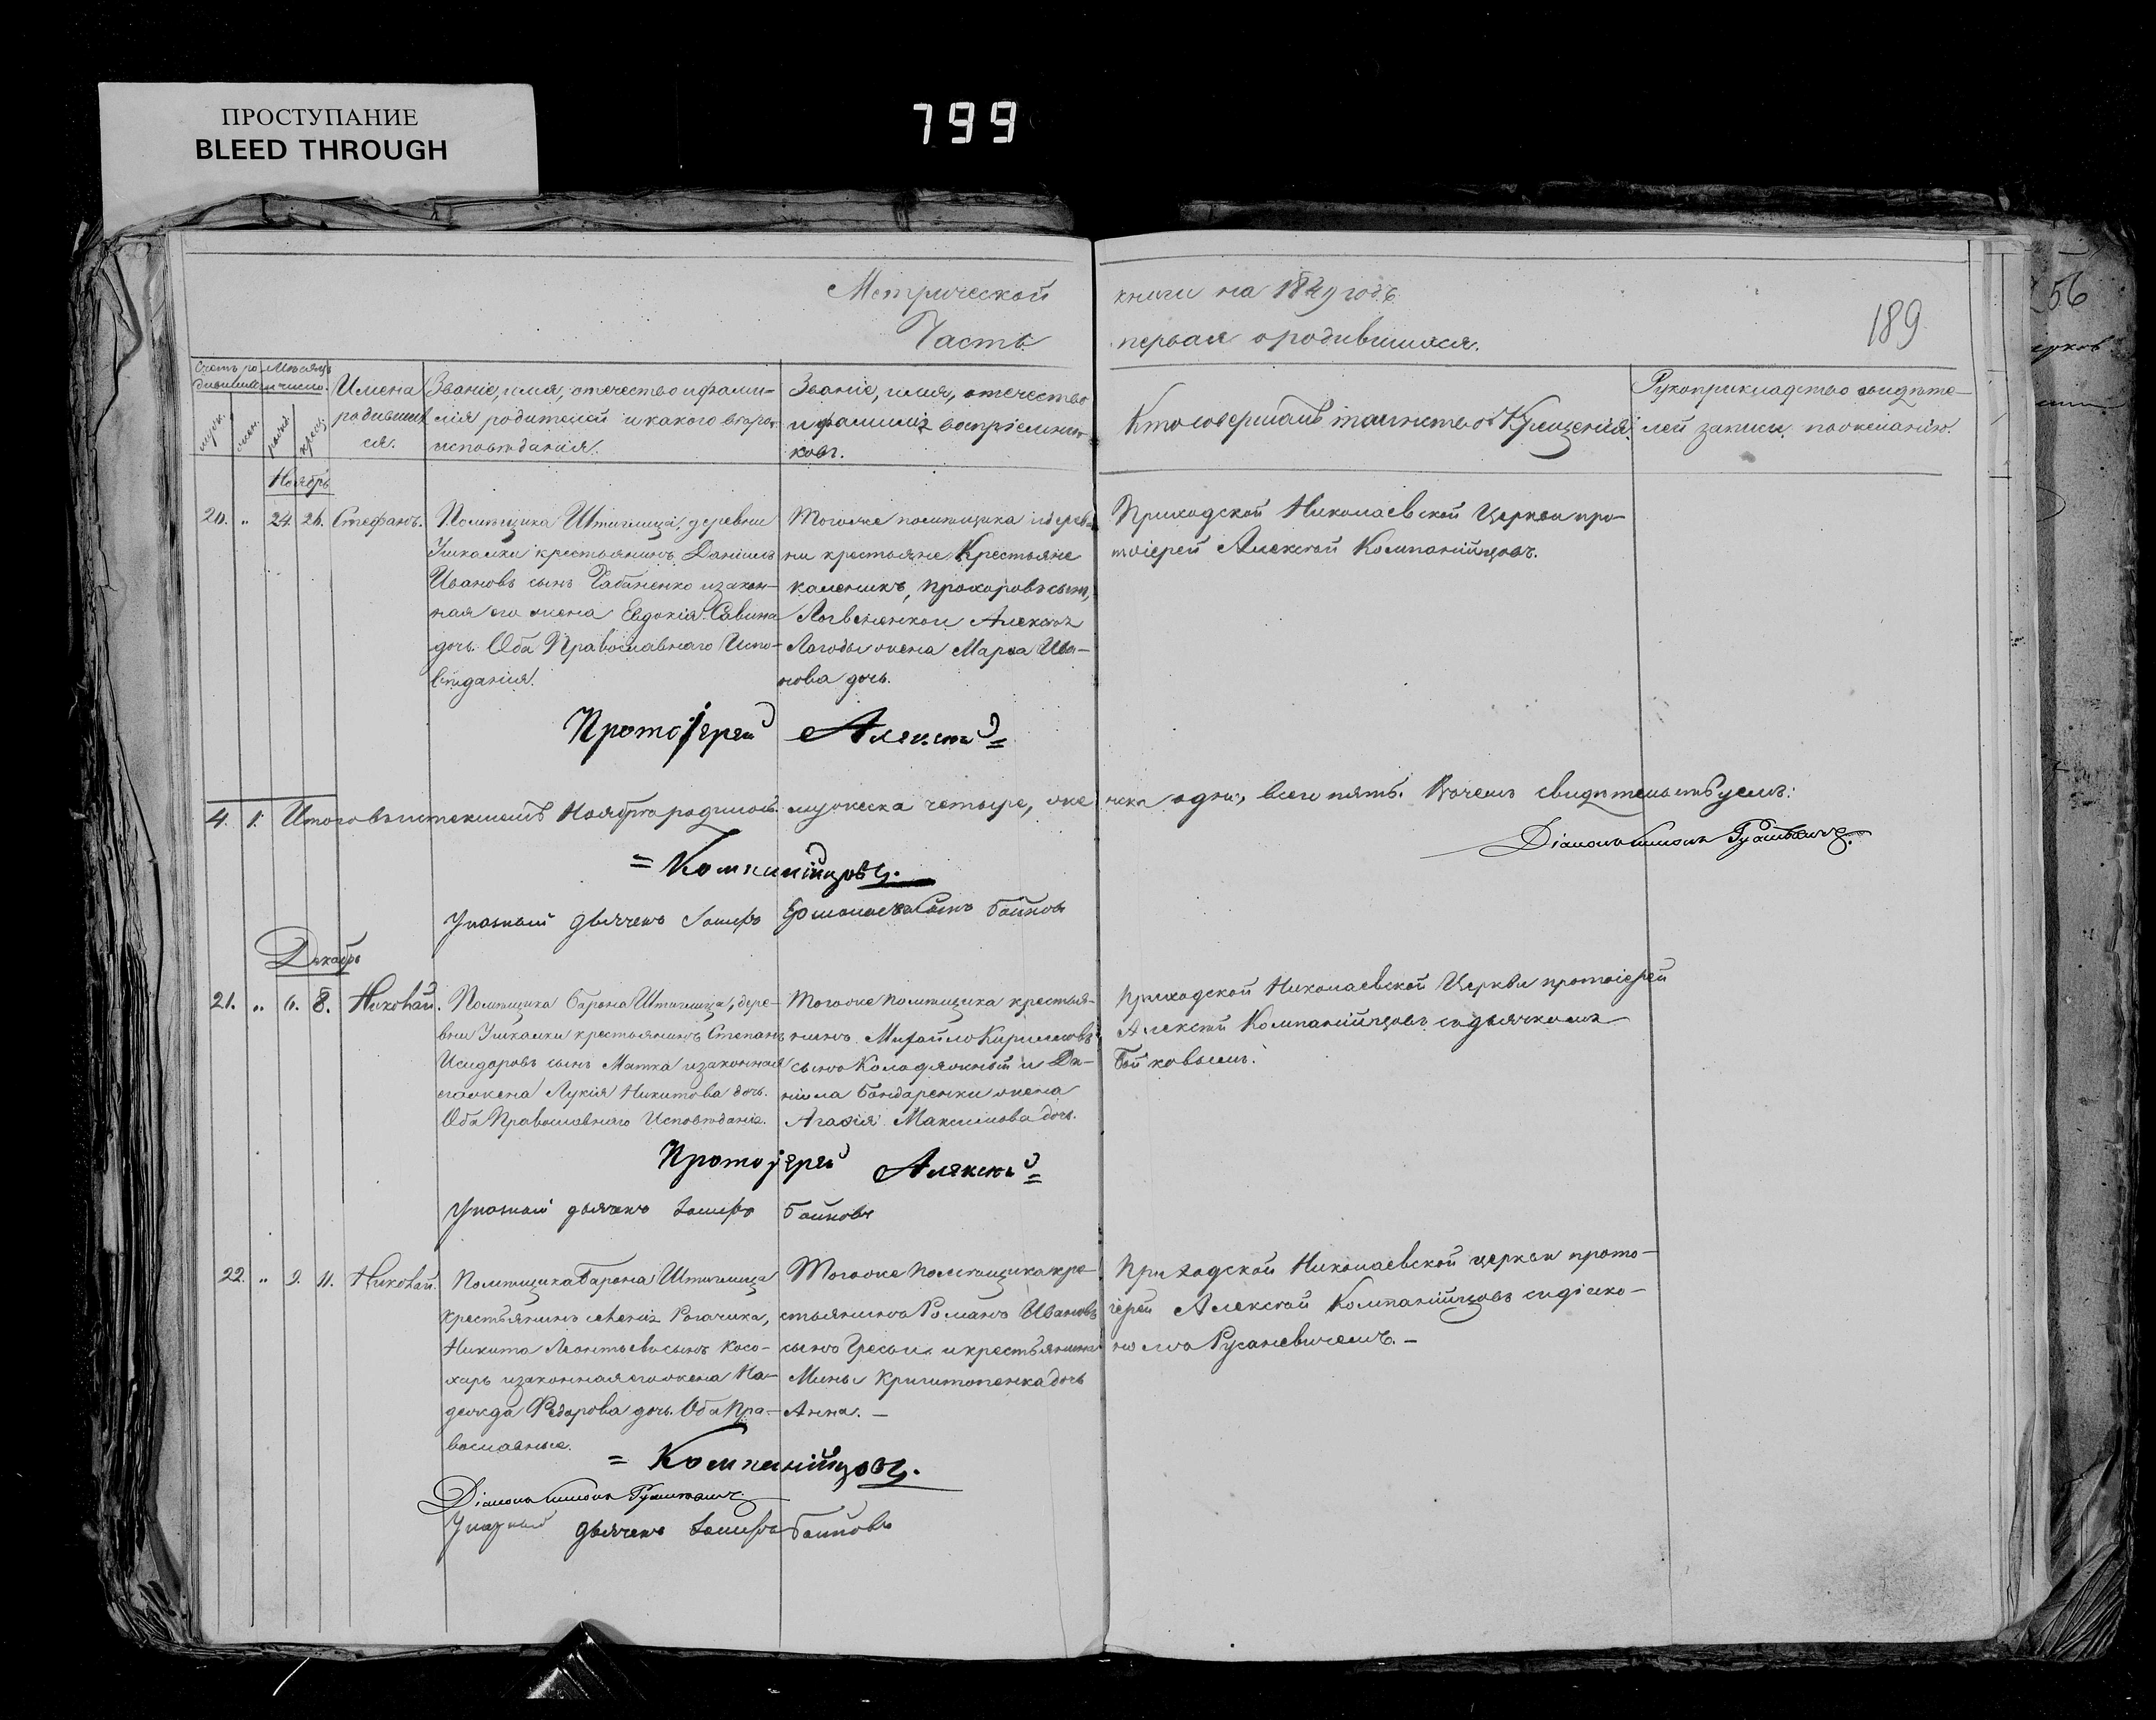 ПРОСТУПАНИЕ
BLEED THROUGH
799
56
Метрической книги на 1849 годъ
189
Часть первая о родившихся.
Счетъ ро-
дившихся
Мѣсяцъ
и число.
муж.
жен.
рожд.
крещ.
Имена
родивших
ся.
Званіе, имя, отечество и фами-
лія родителей и какого вѣро-
исповѣданія.
Званіе, имя, отечество
и фамилія воспріемни-
ковъ.
Кто совершалъ таинство Крещенія.
Рукоприкладство свидѣте-
лей записи по желанію.
Ноябрь
20. „ 24. 26. Стефанъ.
Помѣщика Штиглица, деревни
Ушкалки крестьянинъ Даніилъ
Ивановъ сынъ Чабаненко и закон-
ная его жена Евдокія Савина
дочь. Оба Православнаго Испо-
вѣданія.
Тогоже помѣщика и дерев-
ни крестьяне Крестьяне
Каленикъ, Прохоровъ сынъ,
Алексѣя
Лагоды жена Марѳа Ива-
нова дочь.
Приходской Николаевской Церкви про-
тоіерей Алексѣй Компанійцовъ.
Протоіерей Алексѣй =
4. 1. Итого въ истекшемъ Ноябрѣ родилось мужеска четыре, женска одна, всего пять. В чемъ свидѣтельствуемъ:
Діаконъ Симонъ Русаневичъ.
= Компанійцовъ.
Указный дьячекъ Іосифъ Ермолаевъ Сынъ Бойковъ
Декабрь
21. „ 6. 8. Николай.
Помѣщика барона Штиглица, дере-
вни Ушкалки крестьянинъ Степанъ
Исидоровъ сынъ Матка и законная
его жена Лукія Никитова дочь.
Оба Православнаго Исповѣданія.
Тогоже помѣщика крестья-
нинъ Михайло Кирилловъ
сынъ Колодяжный и Да-
ніила Бондаренки жена
Агафія Максимова дочь.
Приходской Николаевской Церкви протоіерей
Алексѣй Компанійцовъ съ дьячкомъ
Бойковымъ.
Протоіерей Алексѣй =
Указный дьячекъ Іосифъ Бойковъ
22. „ 9. 11. Николай.
Помѣщика Барона Штиглица
крестьянинъ Рогачика,
Никита Леонтьевъ сынъ Косо-
хирь и законная его жена На-
дежда Федорова дочь. Оба Пра-
вославные.
Тогоже Помѣщика кре-
стьянинъ Романъ Ивановъ
сынъ и крестьянина
Мины дочь
Анна. —
Приходской Николаевской церкви прото-
іерей Алексѣй Компанійцовъ съ діако-
номъ Русаневичемъ. —
= Компанійцовъ.
Діаконъ Симонъ Русаневичъ
Указный дьячекъ Іосифъ Бойковъ